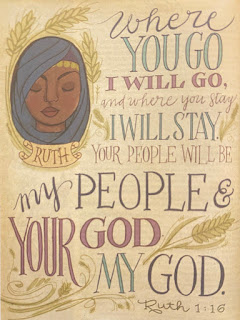 Where
YOU GO
I WILL GO,
and where you stay
I WILL STAY.
RUTH
YOUR PEOPLE WILL BE
my PEOPLE &
YOUR GOD
MY GOD.
Ruth 1:16